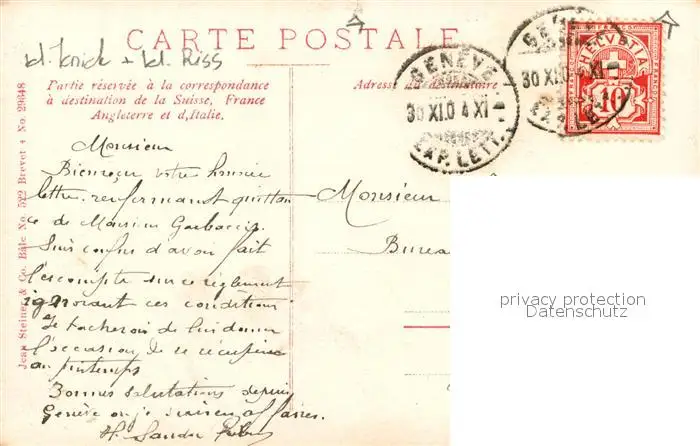 kl. Knick + kl. Riss
CARTE POSTALE
Partie réservée à la correspondance
à destination de la Suisse, France
Angleterre et d'Italie.
Adresse du destinataire
GENÈVE
30 XI.0 4 XI
EXP. LETT.
30 XI.0 4 XI
HELVETIA
10
Jean Steiner & Co. Bâle No. 522 Brevet + No. 29648
Monsieur
Bien reçu votre honorée
lettre renfermant quittan
ce de Monsieur
Suis confus d'avoir fait
l'escompte sur ce règlement
ignorant ces conditions
Je tacherai de
l'occasion de se récupérer
au printemps
Bonnes salutations depuis
Genève où je suis en affaires.
Monsieur
Burea
privacy protection
Datenschutz